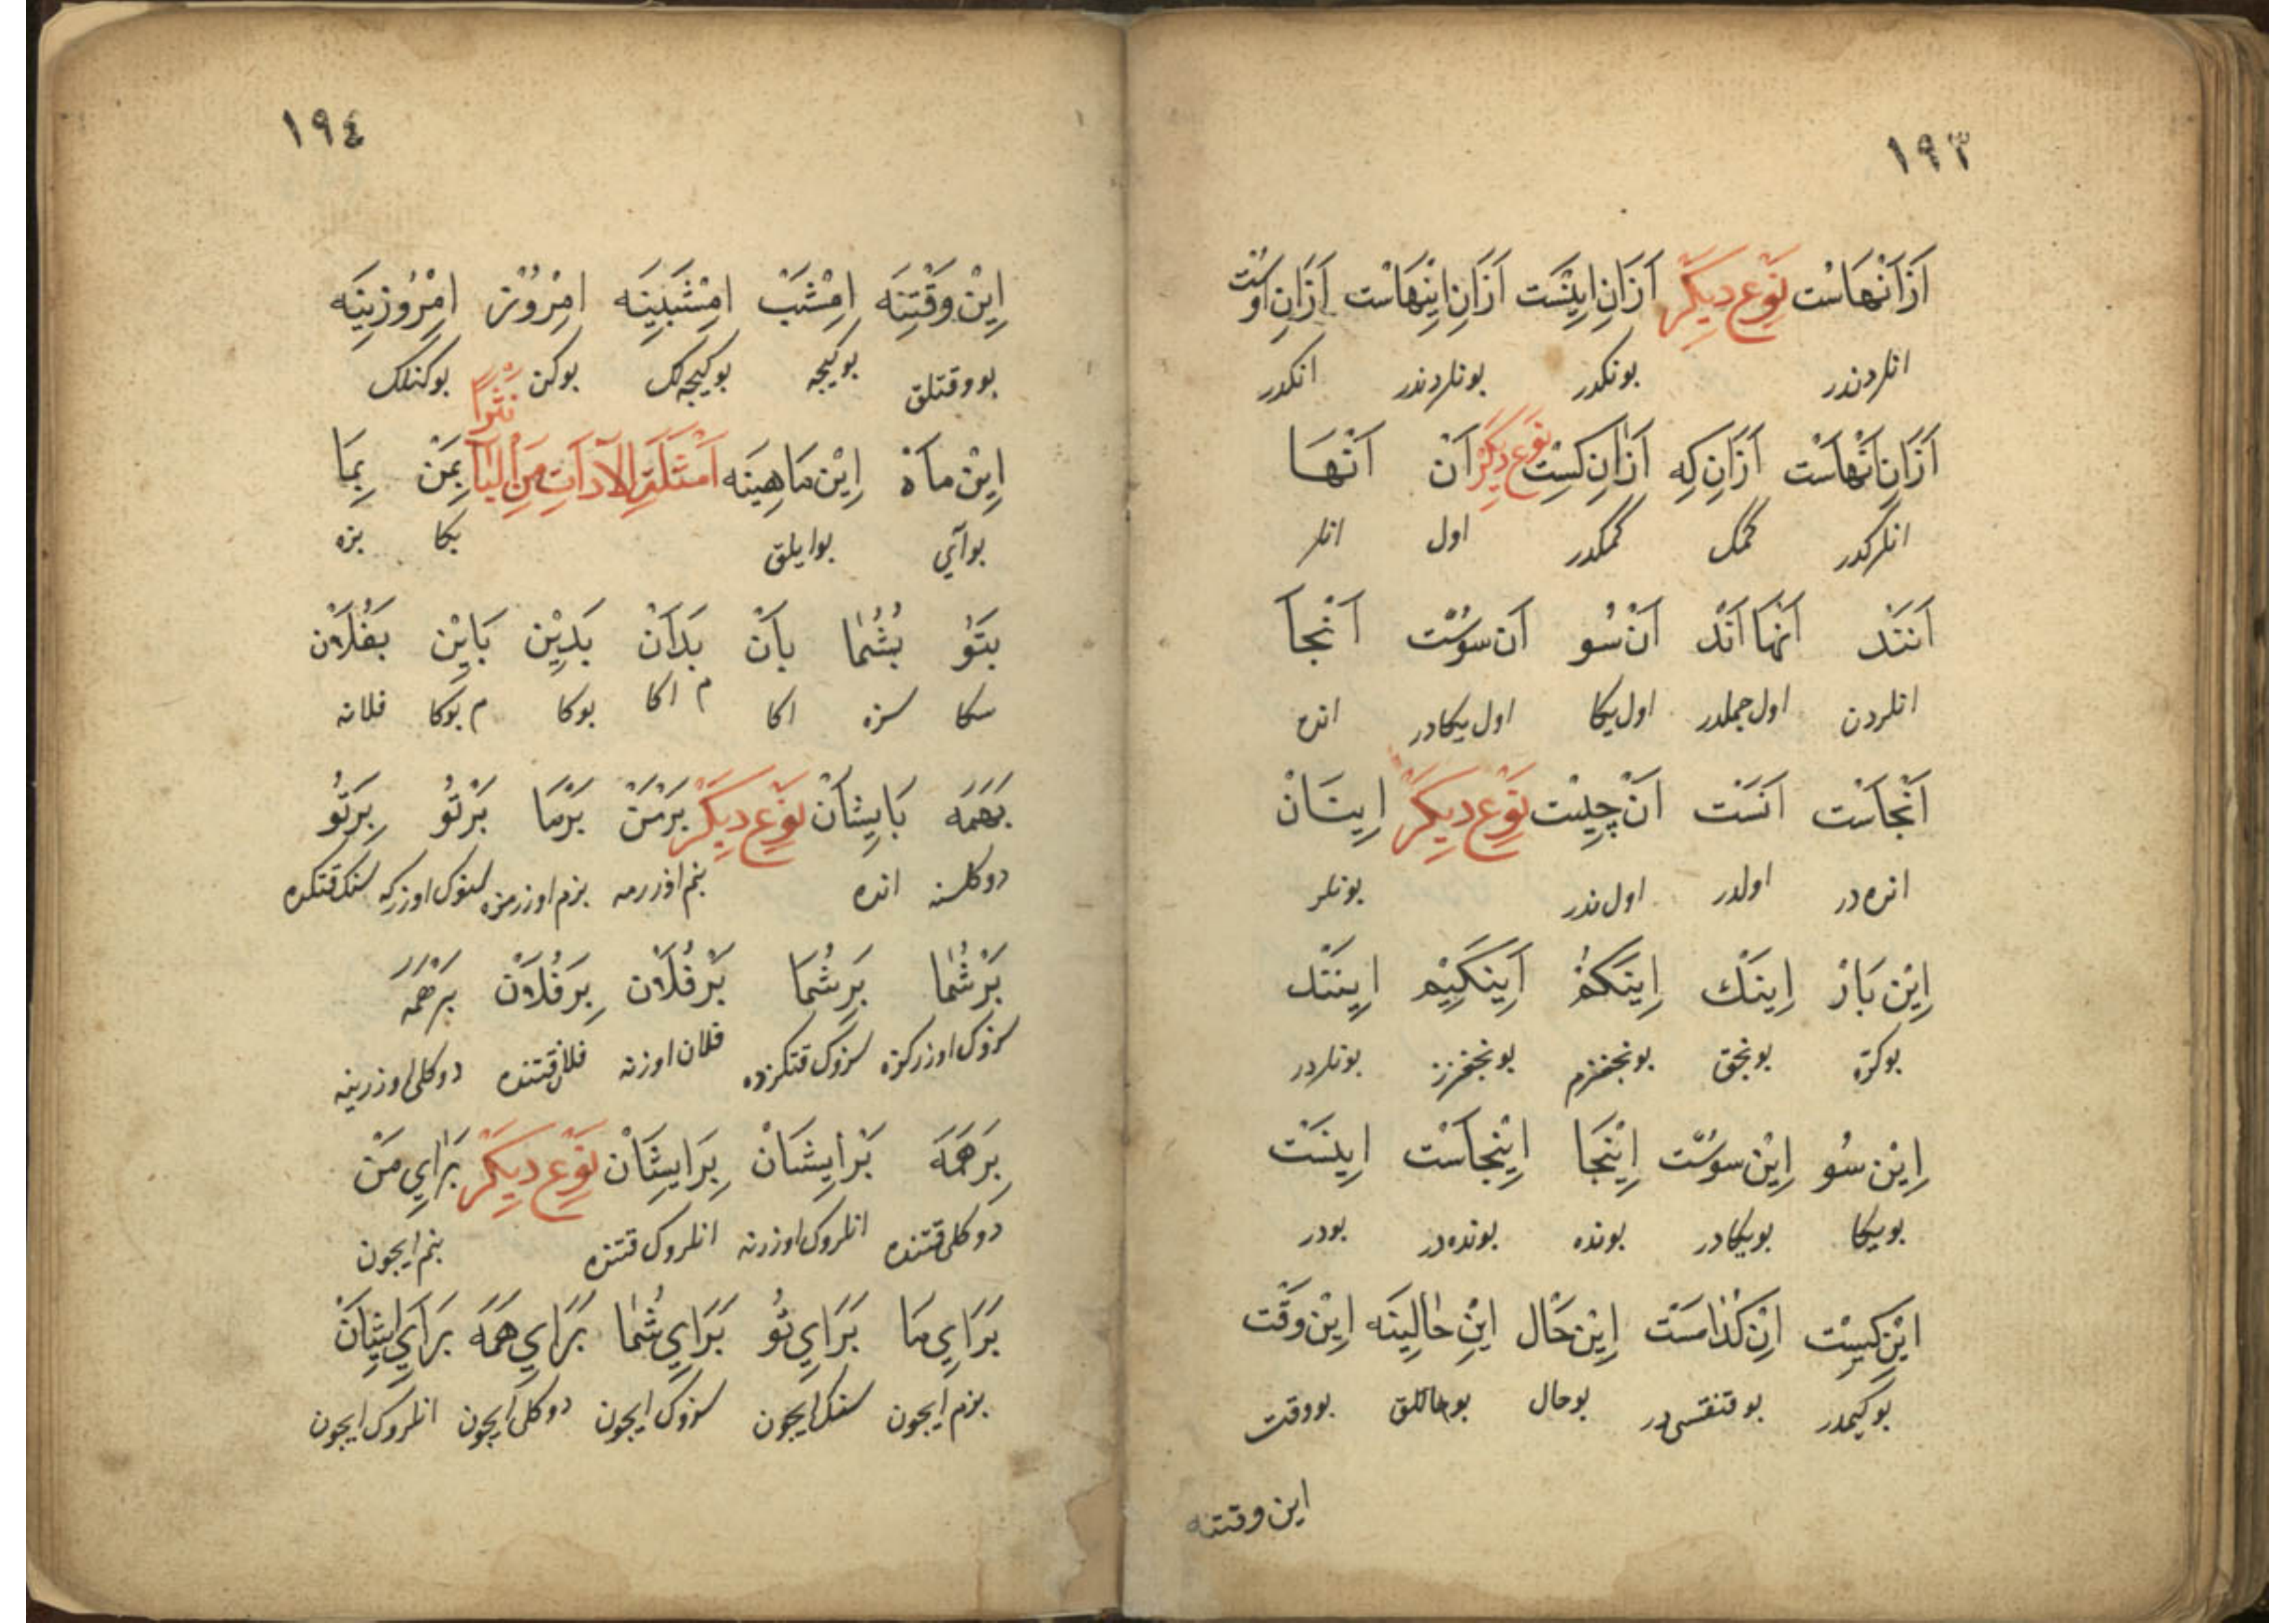 ١٩٣
اَزْاَنْهَاسْت نَوْعِ دِيگَرْ اَزَانِ اِينَسْت اَزَانِ اِينْهَاسْت اَزَانِ اوسْت
انلردندر بونكدر بونلردندر انكدر
اَزَانِ اَنْهَاسْت اَزَانِ كِه اَزَانِ كِسْت نَوْعِ دِيگَرْ اَنْ اَنْهَا
انلركدر كمك كمكدر اول انلر
اَنَنَدْ اَنْهَا اَنْد اَنْ سُو اَنْ سُوسْت اَنْجَا
انلردن اول جملدر اول يكا اول يكادر انده
اَنْجَاسْت اَنَسْت اَنْ چِيسْت نَوْعِ دِيگَرْ اِينَانْ
انده در اولدر اول ندر بونلر
اِيْنْ بَارْ اِينَكْ اِينَكَمْ اَينَكِيْم اِينَنْد
بوكرّه بونجق بونجغزم بونجغزز بونلردر
اِيْنْ سُو اِيْنْ سُوسْت اِيْنْجَا اِيْنْجَاسْت اِينَسْت
بويكا بويكادر بونده بونده در بودر
اِيْن كِيسْت اِنْ كُدَامَسْت اِيْنْ حَال اِيْنِ حَالِينَه اِيْنْ وَقْت
بوكيمدر بوقنقسى در بوحال بوحاللق بووقت
اين وقتنه
١٩٤
اِيْنْ وَقْتِنَه اِمْشَبْ اِمْشَبِينَه اِمْرُوْز اِمْرُوزِينَه
بووقتلق بوكيجه بوكيجه لك بوكن بوكنلك
نَثْرًا
اِيْنْ مَاهْ اِيْنْ مَاهِينَه اَمْثِلَةِ الْاَدَاتِ مِنَ الْبَا بِمَنْ بِمَا
بوآي بوايلق بكا بزه
بَتُو بُشُمَا بَانْ بَدَانْ بَدِيْن بَايْن بَفُلَانْ
سكا سزه اكا م اكا بوكا م بوكا فلانه
بَهَمَه بَايِشَانْ نَوْعِ دِيگَرْ بَرْمَنْ بَرْمَا بَرْتُو بِرَتُو
دوكلنه انده بنم اوزرمه بزم اوزرمزه سنوك اوزركه سنك قتكده
بَرْشُمَا بَرِشُمَا بَرْفُلَانْ بِرَفُلَانْ بَرْهَمَه
سزوك اوزركزه سزوك قتكزده فلان اوزرنه فلان قتنده دوكلى اوزرينه
بِرَهَمَه بَرْاِيشَانْ بِرَايشَانْ نَوْعِ دِيگَرْ بَرَايِ مَنْ
دوكلى قتنده انلروك اوزرنه انلروك قتنده بنم ايچون
بَرَايِ مَا بَرَايِ تُو بَرَايِ شُمَا بَرَايِ هَمَه بَرَايِ ايشَانْ
بزم ايچون سنك ايچون سزوك ايچون دوكلى ايچون انلروك ايچون